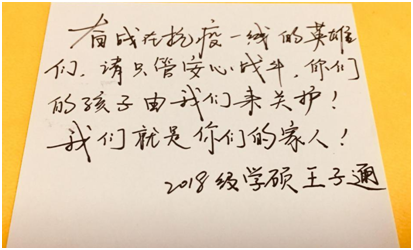 奋战在抗疫一线的英雄
们，请只管安心战斗，你们
的孩子由我们来关护！
我们就是你们的家人！
2018级学硕 王子通